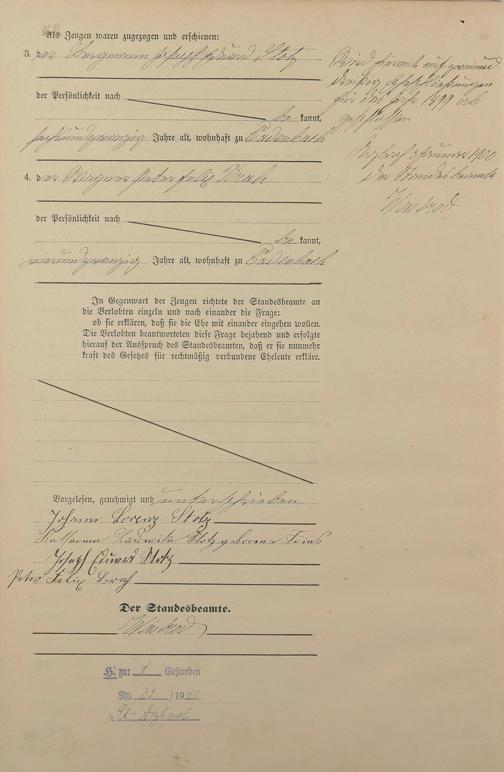 Als Zeugen waren zugezogen und erschienen:
3. der Bergmann Joseph Eduard Stotz
der Persönlichkeit nach
be kannt,
sechsundzwanzig Jahre alt, wohnhaft zu Cadenbach
4. der Wagner Peter Felix
der Persönlichkeit nach
be kannt,
vierundzwanzig Jahre alt, wohnhaft zu Cadenbach
In Gegenwart der Zeugen richtete der Standesbeamte an
die Verlobten einzeln und nach einander die Frage:
ob sie erklären, daß sie die Ehe mit einander eingehen wollen.
Die Verlobten beantworteten diese Frage bejahend und erfolgte
hierauf der Ausspruch des Standesbeamten, daß er sie nunmehr
kraft des Gesetzes für rechtmäßig verbundene Eheleute erkläre.
Vorgelesen, genehmigt und unterschrieben
Johann Lorenz Stotz
Katharina Stotz geborene Fries
Joseph Eduard Stotz
Peter Felix
Der Standesbeamte.
H. zu: 1 Gestorben
No. 31 /19
St. Arzbach
Wird hiermit auf Grund
Eheschließungen
für das Jahr 1899 ab
geschlossen
Arzbach Januar 1900
Der Standesbeamte